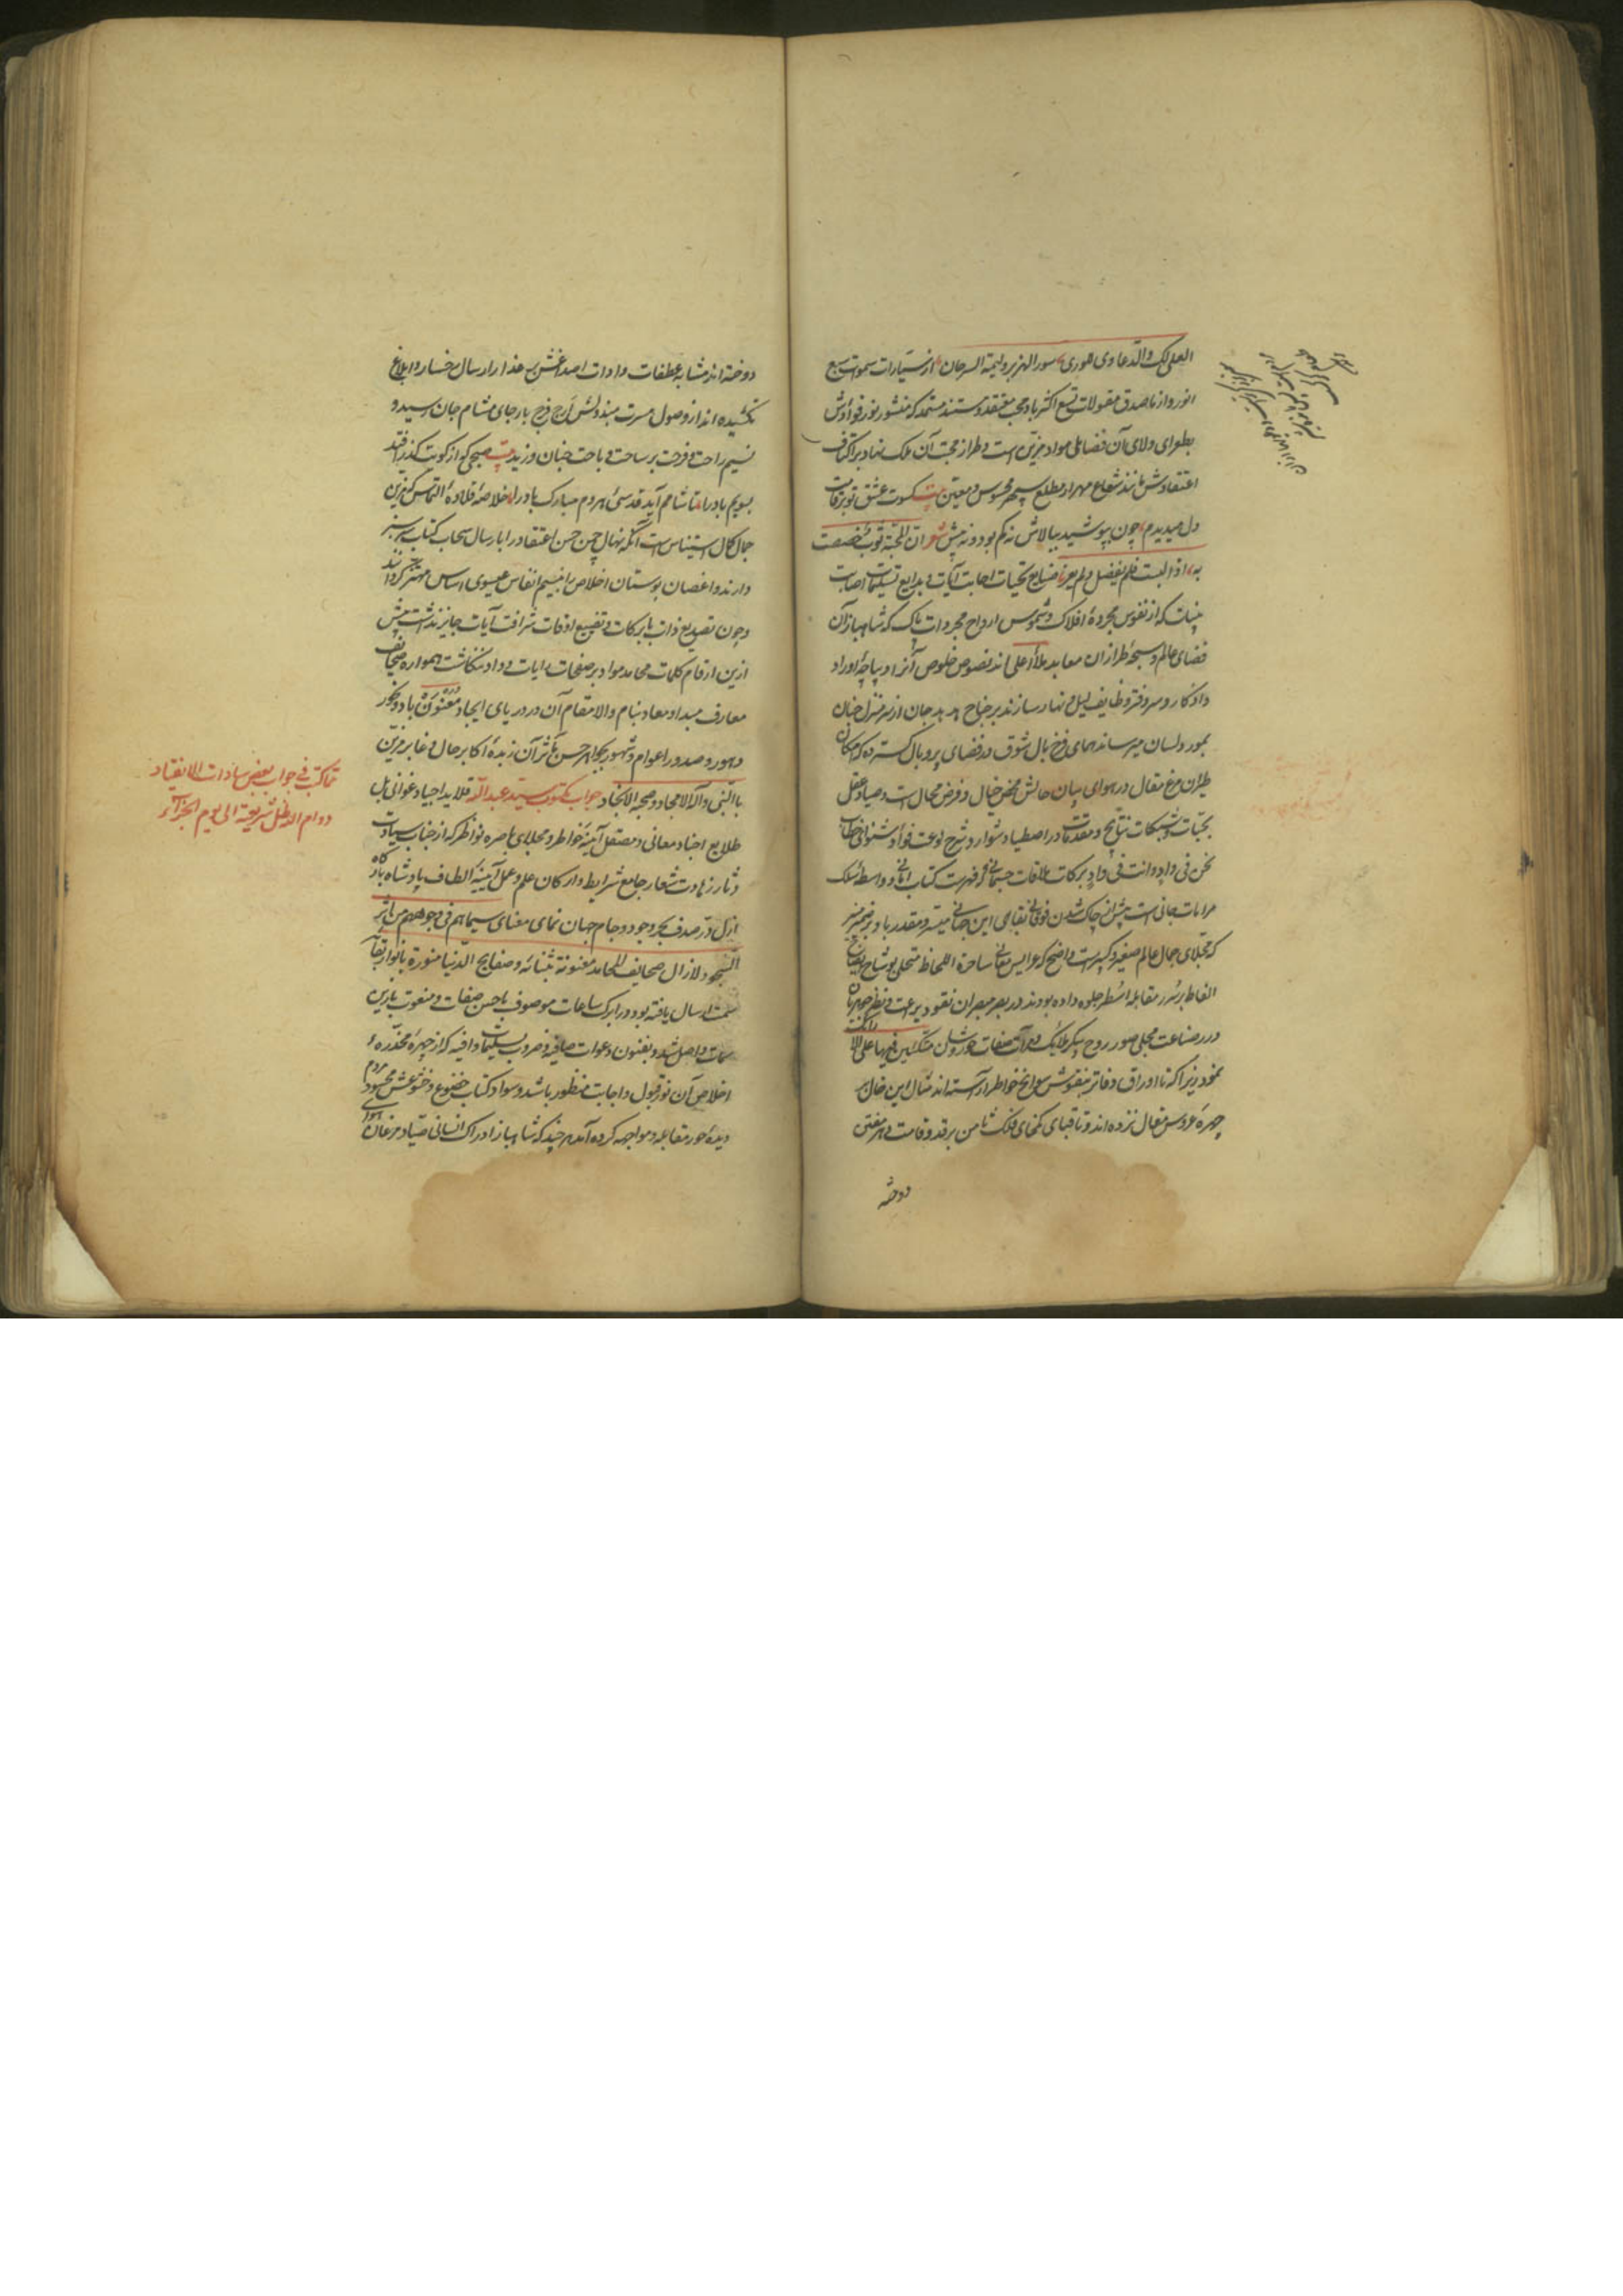 العلی لک والدعاوی هوری سور الهزبر ولیمة السرحان از سیارات سموات سبع
انور و از ناصدق مقولات تسع اکثر باد محب معتقد و مستند مستمد که منشور نور فوادش
بطغرای ولای آن فضائل مواد مزین است و طراز محبت آن ملک نهاد بر اکتاف
اعتقادش مانند شعاع مهر از مطلع سپهر محسوس و معین بیت کسوت عشق تو بر قامت
دل میدیدم چون بپوشید ببالاش نه کم بود و نه بیش شعر ان المحبة ثوب خصصت
به اذا لبست فلم یفضل و لم یعز صنایع تحیات اجابت آیات و بدایع تسلیمات اصابت
بینات که از نفوس مجرده افلاک و شموس ارواح مجردات پاک که شاهبازان
فضای عالم و سبحه طرازان معابد ملا اعلی اند نصوص خلوص آنرا دیباچه اوراد
و اذکار و سر دفتر وظایف لیل و نهار سازند بر جناح هدهد جان از سر منزل جنان
بمورد لسان میرساند همای فرخ بال شوق در فضای پر و بال گسترده که امکان
طیران مرغ مقال در هوای بیان حالش محض خیال و فرض محال است و صیاد عقل
بحبات و شبکات نتایج و مقدمات در اصطیاد شوارد شرح لوعت فواد
نحن فی واد و انت فی واد برکات ملاقات جسمانی که فهرست کتاب امانی و واسطه سلک
مرادات جانی است پیش از چاک شدن بقای این جهانی میسر و مقدر باد بر ضمیر منیر
که مجلای جمال عالم صغیر و کبیر است واضح که عرایس معانی ساحرة اللحاظ متحلی بوشاح
الفاظ بر سرر مقابله اسطر جلوه داده بودند در بصر مبصران نقود براعت و نظر جوهریان
درر صناعت مجلی صور روح پیکر ملائک و مرآت صفات متکئین فیها علی الارائک
نمود زیرا که تا اوراق دفاتر بنقوش سوانح خواطر آراسته اند مثال این خال بر
چهره عروس مقال نزده اند و تا قبای کمخای فلک ثامن بر قد و قامت
دوخته
دوخته اند مشابه عطفات واوات اصداغش بر عذار ارسال رخسار و ابلاغ
نکشیده اند از وصول مسرت مبذولش ارج فرح بار جای مشام جان رسید و
نسیم راحت و فرحت بر ساحت و باحت جنان وزید بیت صبحی که از کویت گذر افتد
بسویم باد را تا شام آید قدسی هر دم مبارک باد را خلاصه قلاده التماس که مزین
جمال کمال استیناس است آنکه نهال چمن حسن اعتقاد را بارسال سحاب کتاب سرسبز
دارند و اغصان بوستان اخلاص را بنسیم انفاس عیسوی اساس مهتز گردانند
و چون تصدیع ذات با برکات و تضییع اوقات شرافت آیات جایز نداشت بیش
ازین ارقام کلمات محامد مواد بر صفحات رایات وداد ننگاشت همواره صحائف
معارف مبدا و معاد بنام والا مقام آن در دریای ایجاد معنون باد و نحور
دهور و صدور اعوام و شهور بجواهر حسن مآثر آن زبده اکابر حال و غابر مزین
بالنبی و آله الامجاد و صحبه الانجاد جواب مکتوب سید عبدالله قلاید اجیاد غوانی بل
طلایع اجناد معانی و مصقل آینه خواطر و مجلای باصره نواظر که از جناب سیادت
دثار زهادت شعار جامع شرایط و ارکان علم و عمل آیینه الطاف پادشاه بارگاه
ازل در صدف بحر وجود و جام جهان نمای معنای سیماهم فی وجوههم من اثر
السجود لا زال صحایف المحامد معنونة بثنائه و صفایح الدنیا منورة بانوار بقائه
سمت ارسال یافته بود در ابرک ساعات موصوف باحسن صفات و منعوت بازین
سمات واصل شد و بفنون دعوات صافیه و ضروب تسلیمات وافیه که از چهره مخدره
اخلاص آن نور قبول و اجابت منظور باشد و سواد کتاب خضوع و خشوعش محسود مردم
دیده حور مقابله و مواجهه کرده آمد هر چند که شاهباز ادراک انسانی صیاد مرغان هوای
مما کتب فی جواب بعض سادات الانقیاد
دوام الله ظل شریعته الی یوم الجزاء